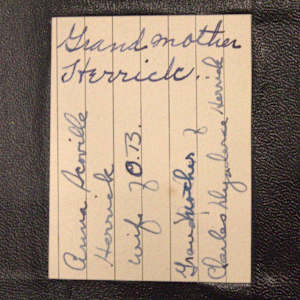 Grandmother
Herrick.
Anna Scoville
Herrick
wife of O.B.
Grandmother of
Charles Herrick